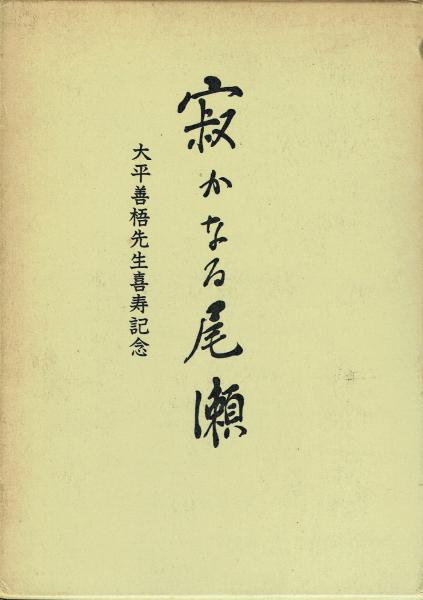 寂かなる尾瀬
大平善梧先生喜寿記念